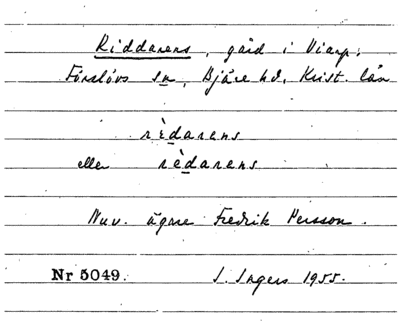 Riddarens, gård i Viarp,
Förslövs sn, Bjäre hd, Krist. län
rèdarens
eller rèdarens
Nuv. ägare Fredrik Persson.
Nr 5049. I. Ingers 1955.